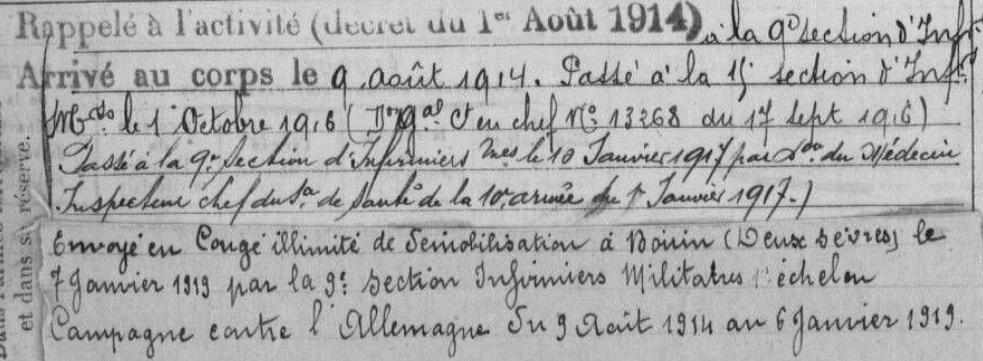 Rappelé à l'activité (décret du 1er Août 1914) à la 9e section d'Infirs
Arrivé au corps le 9 août 1914. Passé à la 15e section d'Infirs
Mres le 1er Octobre 1916 (Don Gal Ct en chef No 13268 du 17 Sept 1916)
Passé à la 9e Section d'Infirmiers Mres le 10 Janvier 1917 par Don du Médecin
Inspecteur chef du Sce de Santé de la 10e armée du 1er Janvier 1917.)
Envoyé en Congé illimité de Démobilisation à Boirin (Deux Sèvres) le
7 Janvier 1919 par la 9e Section Infirmiers Militaires 1er échelon
Campagne contre l'Allemagne Du 9 Août 1914 au 6 Janvier 1919.
et dans sa réserve.